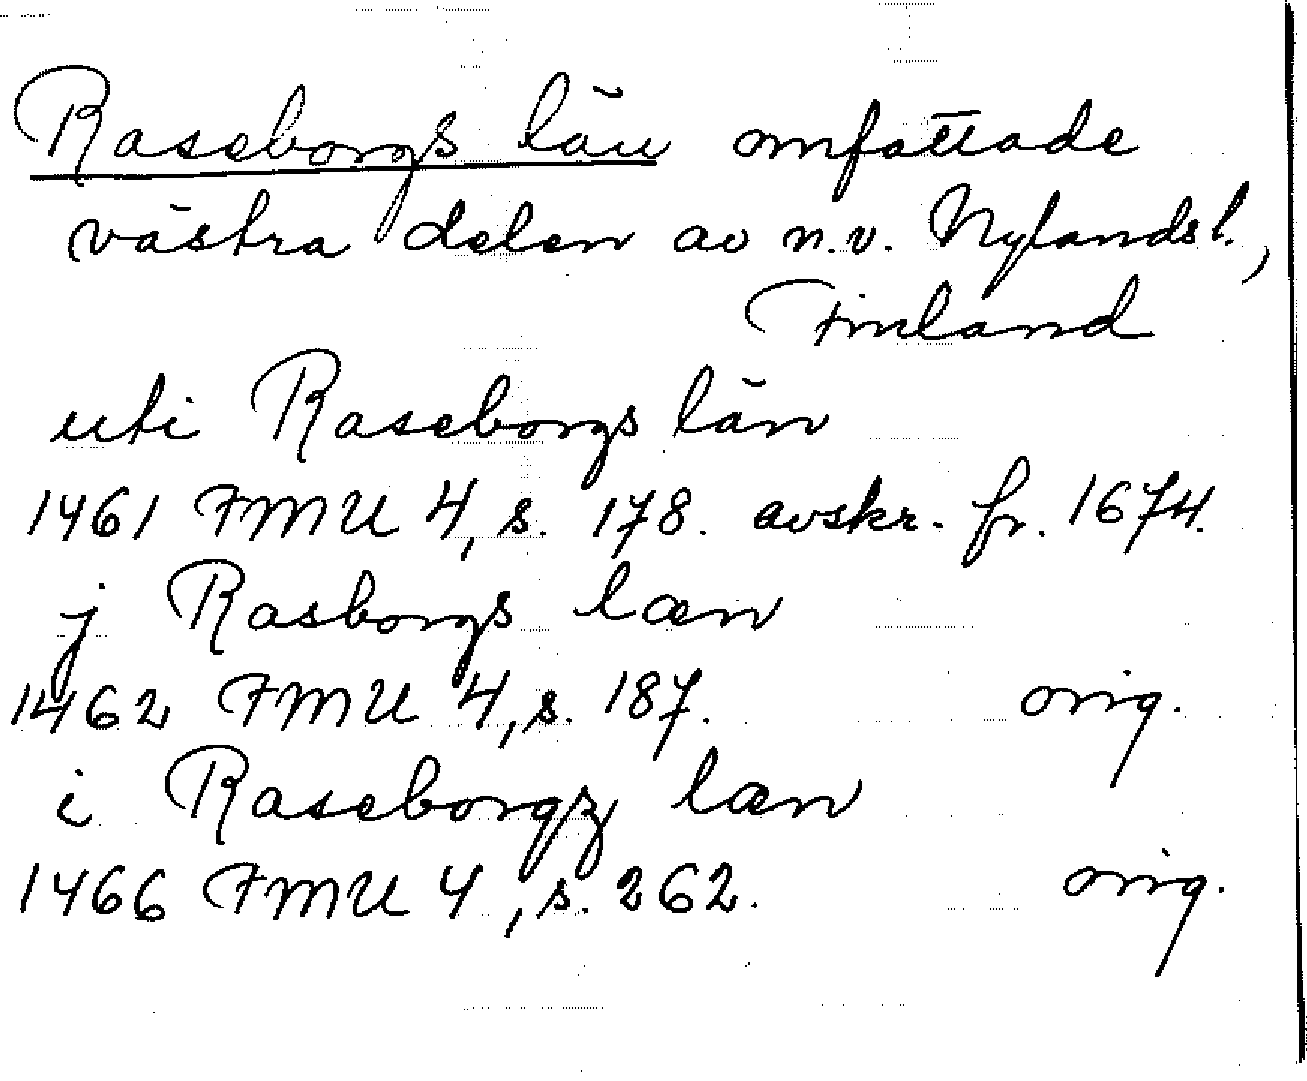 Raseborgs län omfattade
västra delen av n.v. Nylands l.,
Finland
uti Raseborgs län
1461 FMU 4, s. 178. avskr. fr. 1674.
j Rasborgs læn
1462 FMU 4, s. 187. orig.
i Raseborgz læn
1466 FMU 4, s. 262. orig.